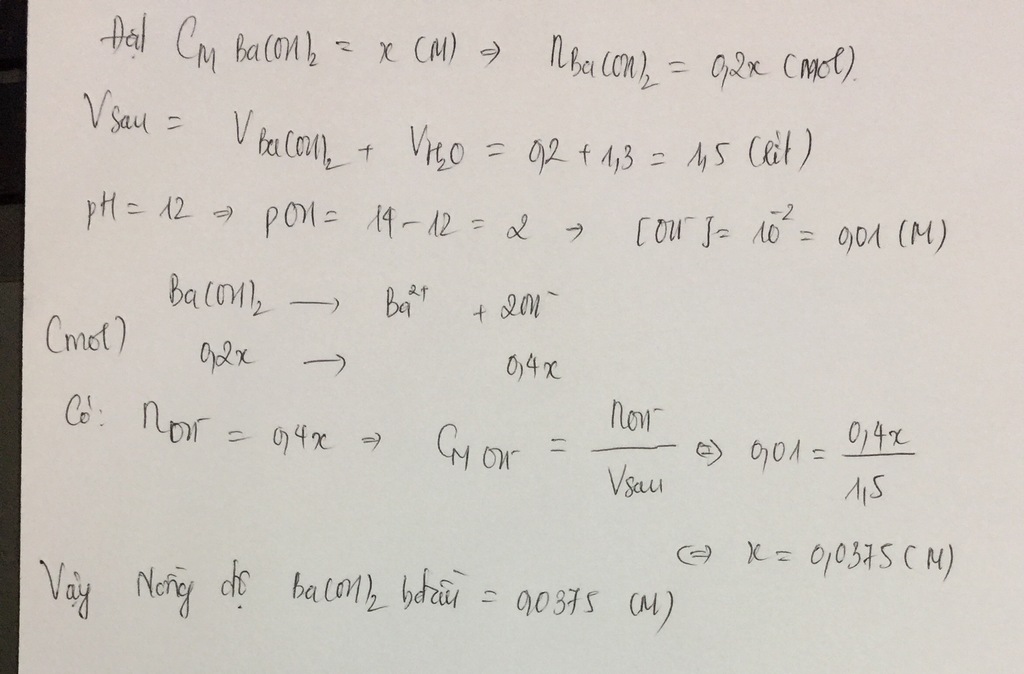 Đặt CM Ba(OH)2 = x (M) => nBa(OH)2 = 0,2x (mol).
Vsau = VBa(OH)2 + VH2O = 0,2 + 1,3 = 1,5 (lít)
pH = 12 => pOH = 14 - 12 = 2 → [OH⁻] = 10⁻² = 0,01 (M)
Ba(OH)2 → Ba²⁺ + 2OH⁻
(mol) 0,2x → 0,4x
Có: nOH⁻ = 0,4x => CM OH⁻ = nOH⁻ / Vsau <=> 0,01 = 0,4x / 1,5
<=> x = 0,0375 (M)
Vậy Nồng độ Ba(OH)2 bđầu = 0,0375 (M)